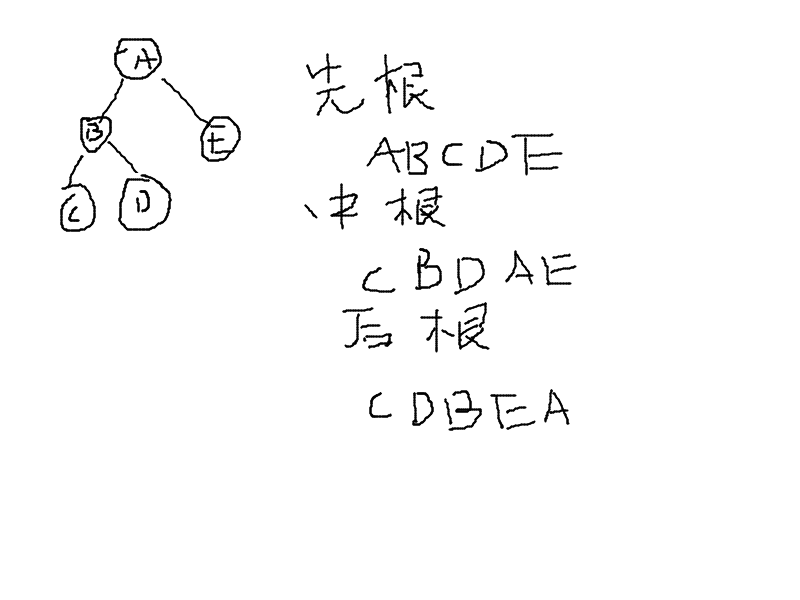 A
B
E
C D
先根
ABCDE
中根
CBDAE
后根
CDBEA